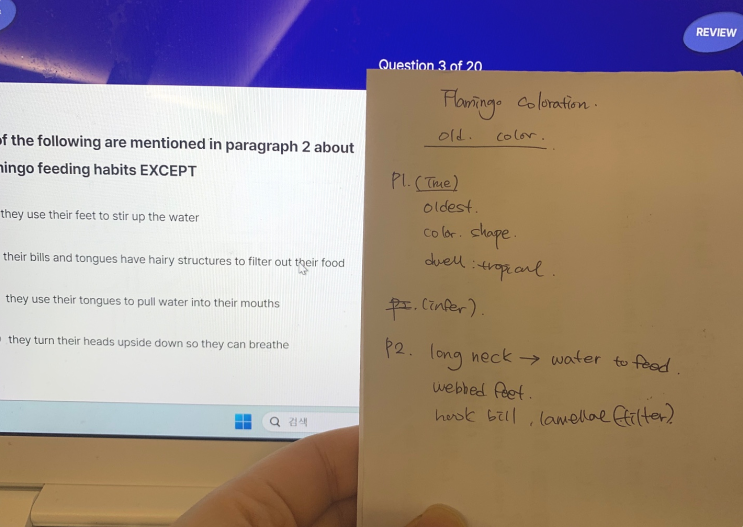 REVIEW
Question 3 of 20
of the following are mentioned in paragraph 2 about
mingo feeding habits EXCEPT
they use their feet to stir up the water
their bills and tongues have hairy structures to filter out their food
they use their tongues to pull water into their mouths
they turn their heads upside down so they can breathe
검색
Flamingo Coloration.
old. color.
P1. (True)
oldest.
color. shape.
dwell: tropical.
(infer).
P2. long neck → water to feed.
webbed feet.
hook bill, lamellae (filter)